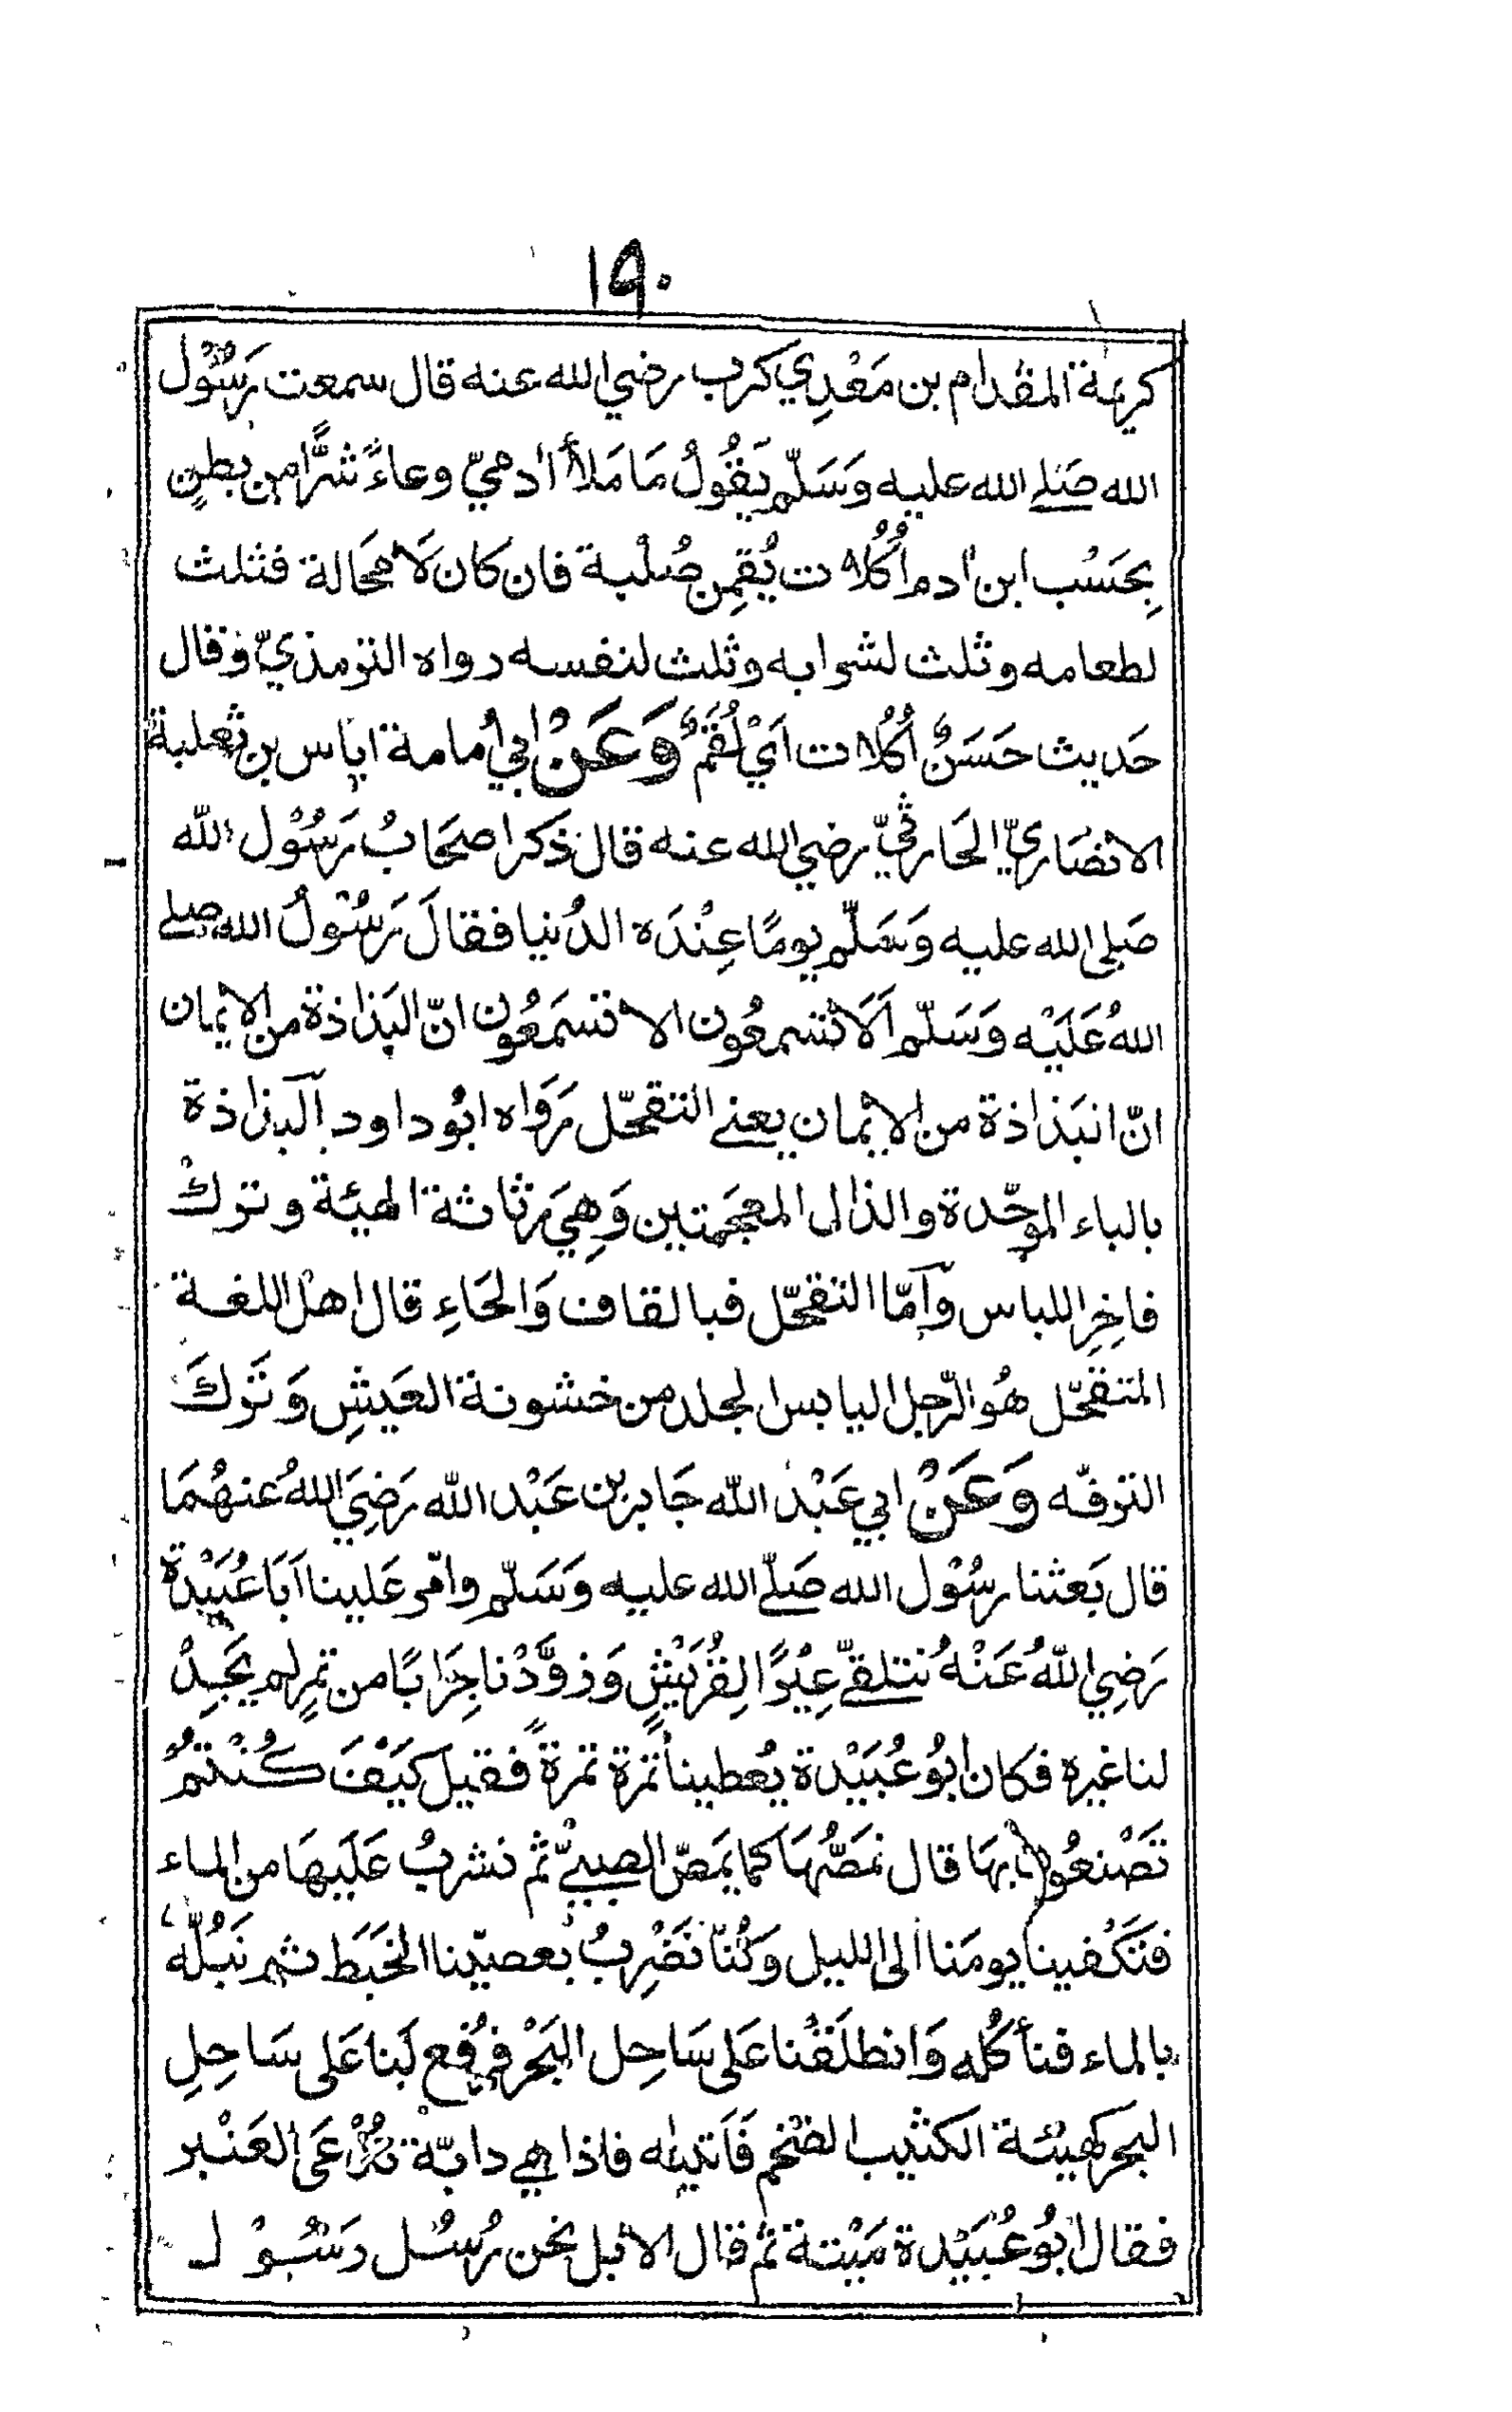 ١٩٠
كريمة المقدام بن مَعْدِي كرب رضي الله عنه قال سمعت رَسُوْل
الله صَلى الله عليه وَسَلّم يَقُولُ مَا مَلأ اٰدميّ وعاءً شرًّا من بطنٍ
بِحَسْب ابن اٰدم أُكُلات يُقِمن صُلْبه فان كان لَا محَالة فثلث
لطعامه وثلث لشرابه وثلث لنفسه رواه الترمذيّ وقال
حَديث حَسَنٌ أُكُلات اَيْ لُقَمٌ وَعَنْ ابي اُمامة اياس بن ثعلبة
الانصَاريّ الحَارثيّ رضي الله عنه قال ذَكر اصحَابُ رَسُوْل الله
صَلى الله عليه وَسَلّم يومًا عِنْدَه الدُنيا فقالَ رَسُوْلُ الله صلى
اللهُ عَلَيْه وَسَلّم اَلَا تسْمعُون الا تسمَعُون انّ البَذاذة من الايمان
انّ البَذاذة من الايمان يعنى التقحّل رَوَاه ابُوداود اَلبذاذة
بالباء الموحّدة والذال المعجمتين وَهِيَ رثاثة الهيئة وتركْ
فاخِرِ اللباس وَاَمّا التقحّل فبالقاف وَالحَاءِ قال اهل اللغة
المتقحّل هُو الرّجل اليابس الجلد من خشونة العَيشِ وَتَركَ
الترفّه وَعَنْ ابي عَبْد الله جَابر بن عَبْد الله رَضِيَ اللهُ عنهُمَا
قال بَعثنا رسُوْل الله صَلّى الله عليه وَسَلّم وامّر عَلينا اَبَا عُبَيْدة
رَضِي اللهُ عَنْهُ نتلقّى عِيْرًا لِقُرَيْشٍ وَزوَّدْنا جِرَابًا من تمرٍ لم يَجِدْ
لنا غيره فكان أبُو عُبَيْدة يُعطينا تمرة تمرةً فقيل كَيْفَ كُنْتمْ
تَصْنعُون بهَا قال نمَصُّهَا كما يمَصّ الصبيّ ثم نشربُ عَلَيهَا من الماء
فتَكْفينا يومَنا الى الليل وَكُنّا نَضْرِبُ بعصيّنا الخَبَط ثم نَبُلّه
بالماء فنأكُله وَانطلَقْنا عَلى سَاحِل البَحْر فرُفع لَنا عَلى سَاحِلِ
البحر كهيئة الكثيب الضخم فَاَتيناه فاذا هي دابّة تُدْعَى العَنْبر
فقال ابُو عُبَيْدة مَيْتة ثم قال لا بل نحن رُسُل رسُوْل